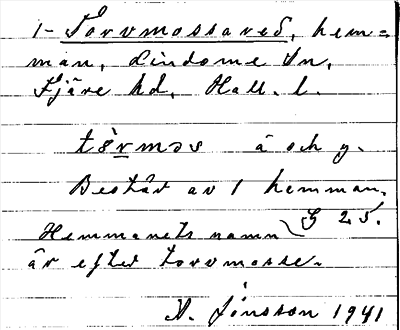 1- Torvmossared, hem=
man, Lindome sn,
Fjäre hd, Hall. l.
a och y.
Består av 1 hemman.
G 25.
Hemmanets namn
är efter torvmosse.
A. Jönsson 1941